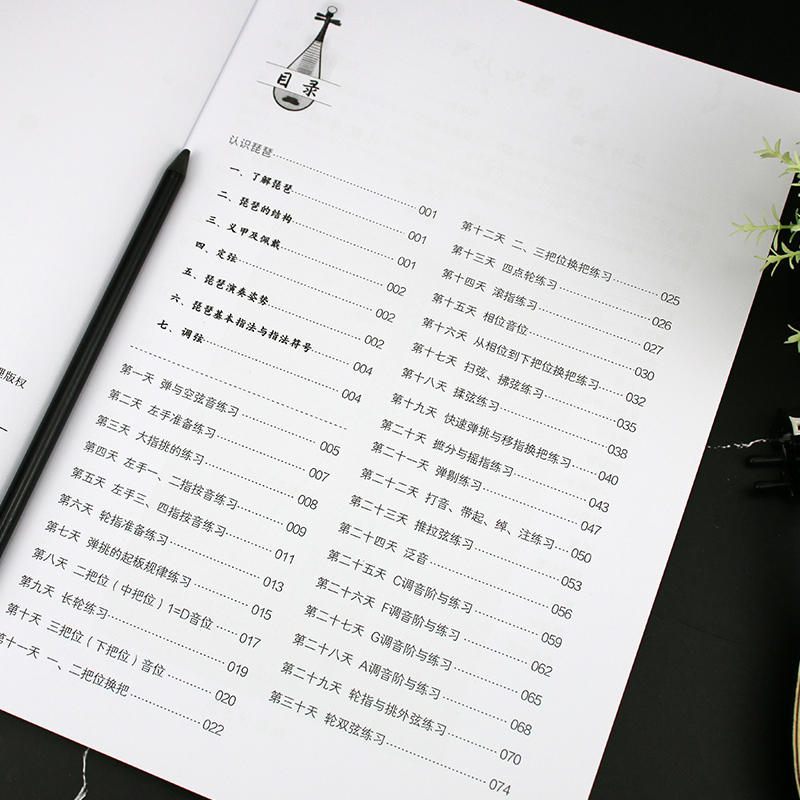 目录
认识琵琶……001
一、了解琵琶……001
二、琵琶的结构……001
三、义甲及佩戴……002
四、定弦……002
五、琵琶演奏姿势……002
六、琵琶基本指法与指法符号……004
七、调弦……004
第一天 弹与空弦音练习……005
第二天 左手准备练习……007
第三天 大指挑的练习……008
第四天 左手一、二指按音练习……009
第五天 左手三、四指按音练习……011
第六天 轮指准备练习……013
第七天 弹挑的起板规律练习……015
第八天 二把位（中把位）1=D音位……017
第九天 长轮练习……019
第十天 三把位（下把位）音位……020
第十一天 一、二把位换把……022
第十二天 二、三把位换把练习……025
第十三天 四点轮练习……026
第十四天 滚指练习……027
第十五天 相位音位……030
第十六天 从相位到下把位换把练习……032
第十七天 扫弦、拂弦练习……035
第十八天 揉弦练习……038
第十九天 快速弹挑与移指换把练习……040
第二十天 摭分与摇指练习……043
第二十一天 弹剔练习……047
第二十二天 打音、带起、绰、注练习……050
第二十三天 推拉弦练习……053
第二十四天 泛音……056
第二十五天 C调音阶与练习……059
第二十六天 F调音阶与练习……062
第二十七天 G调音阶与练习……065
第二十八天 A调音阶与练习……068
第二十九天 轮指与挑外弦练习……070
第三十天 轮双弦练习……074
理版权